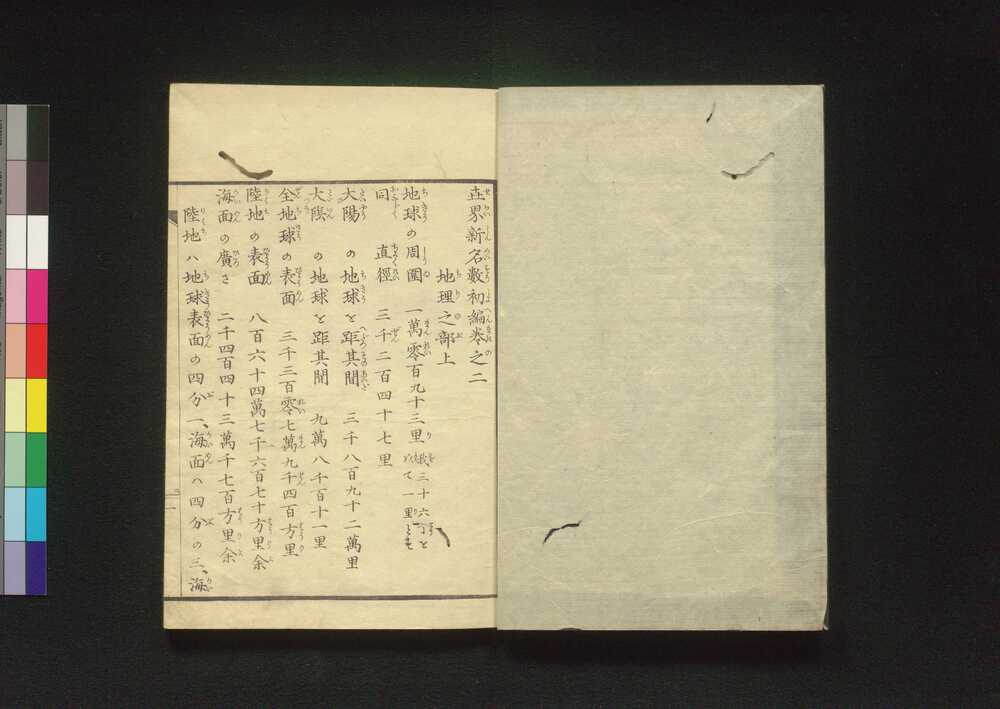 世界新名数初編巻之二
地理之部上
地球の周囲　一萬零百九十三里　我三十六丁を以て一里とす
同　直徑　三千二百四十七里
大陽　の地球を距其間　三千八百九十二萬里
大陰　の地球を距其間　九萬八千百十一里
全地球の表面　三千三百零七萬九千四百方里
陸地の表面　八百六十四萬七千六百七十方里余
海面の廣さ　二千四百四十三萬千七百方里余
陸地ハ地球表面の四分一、海面ハ四分の三、海